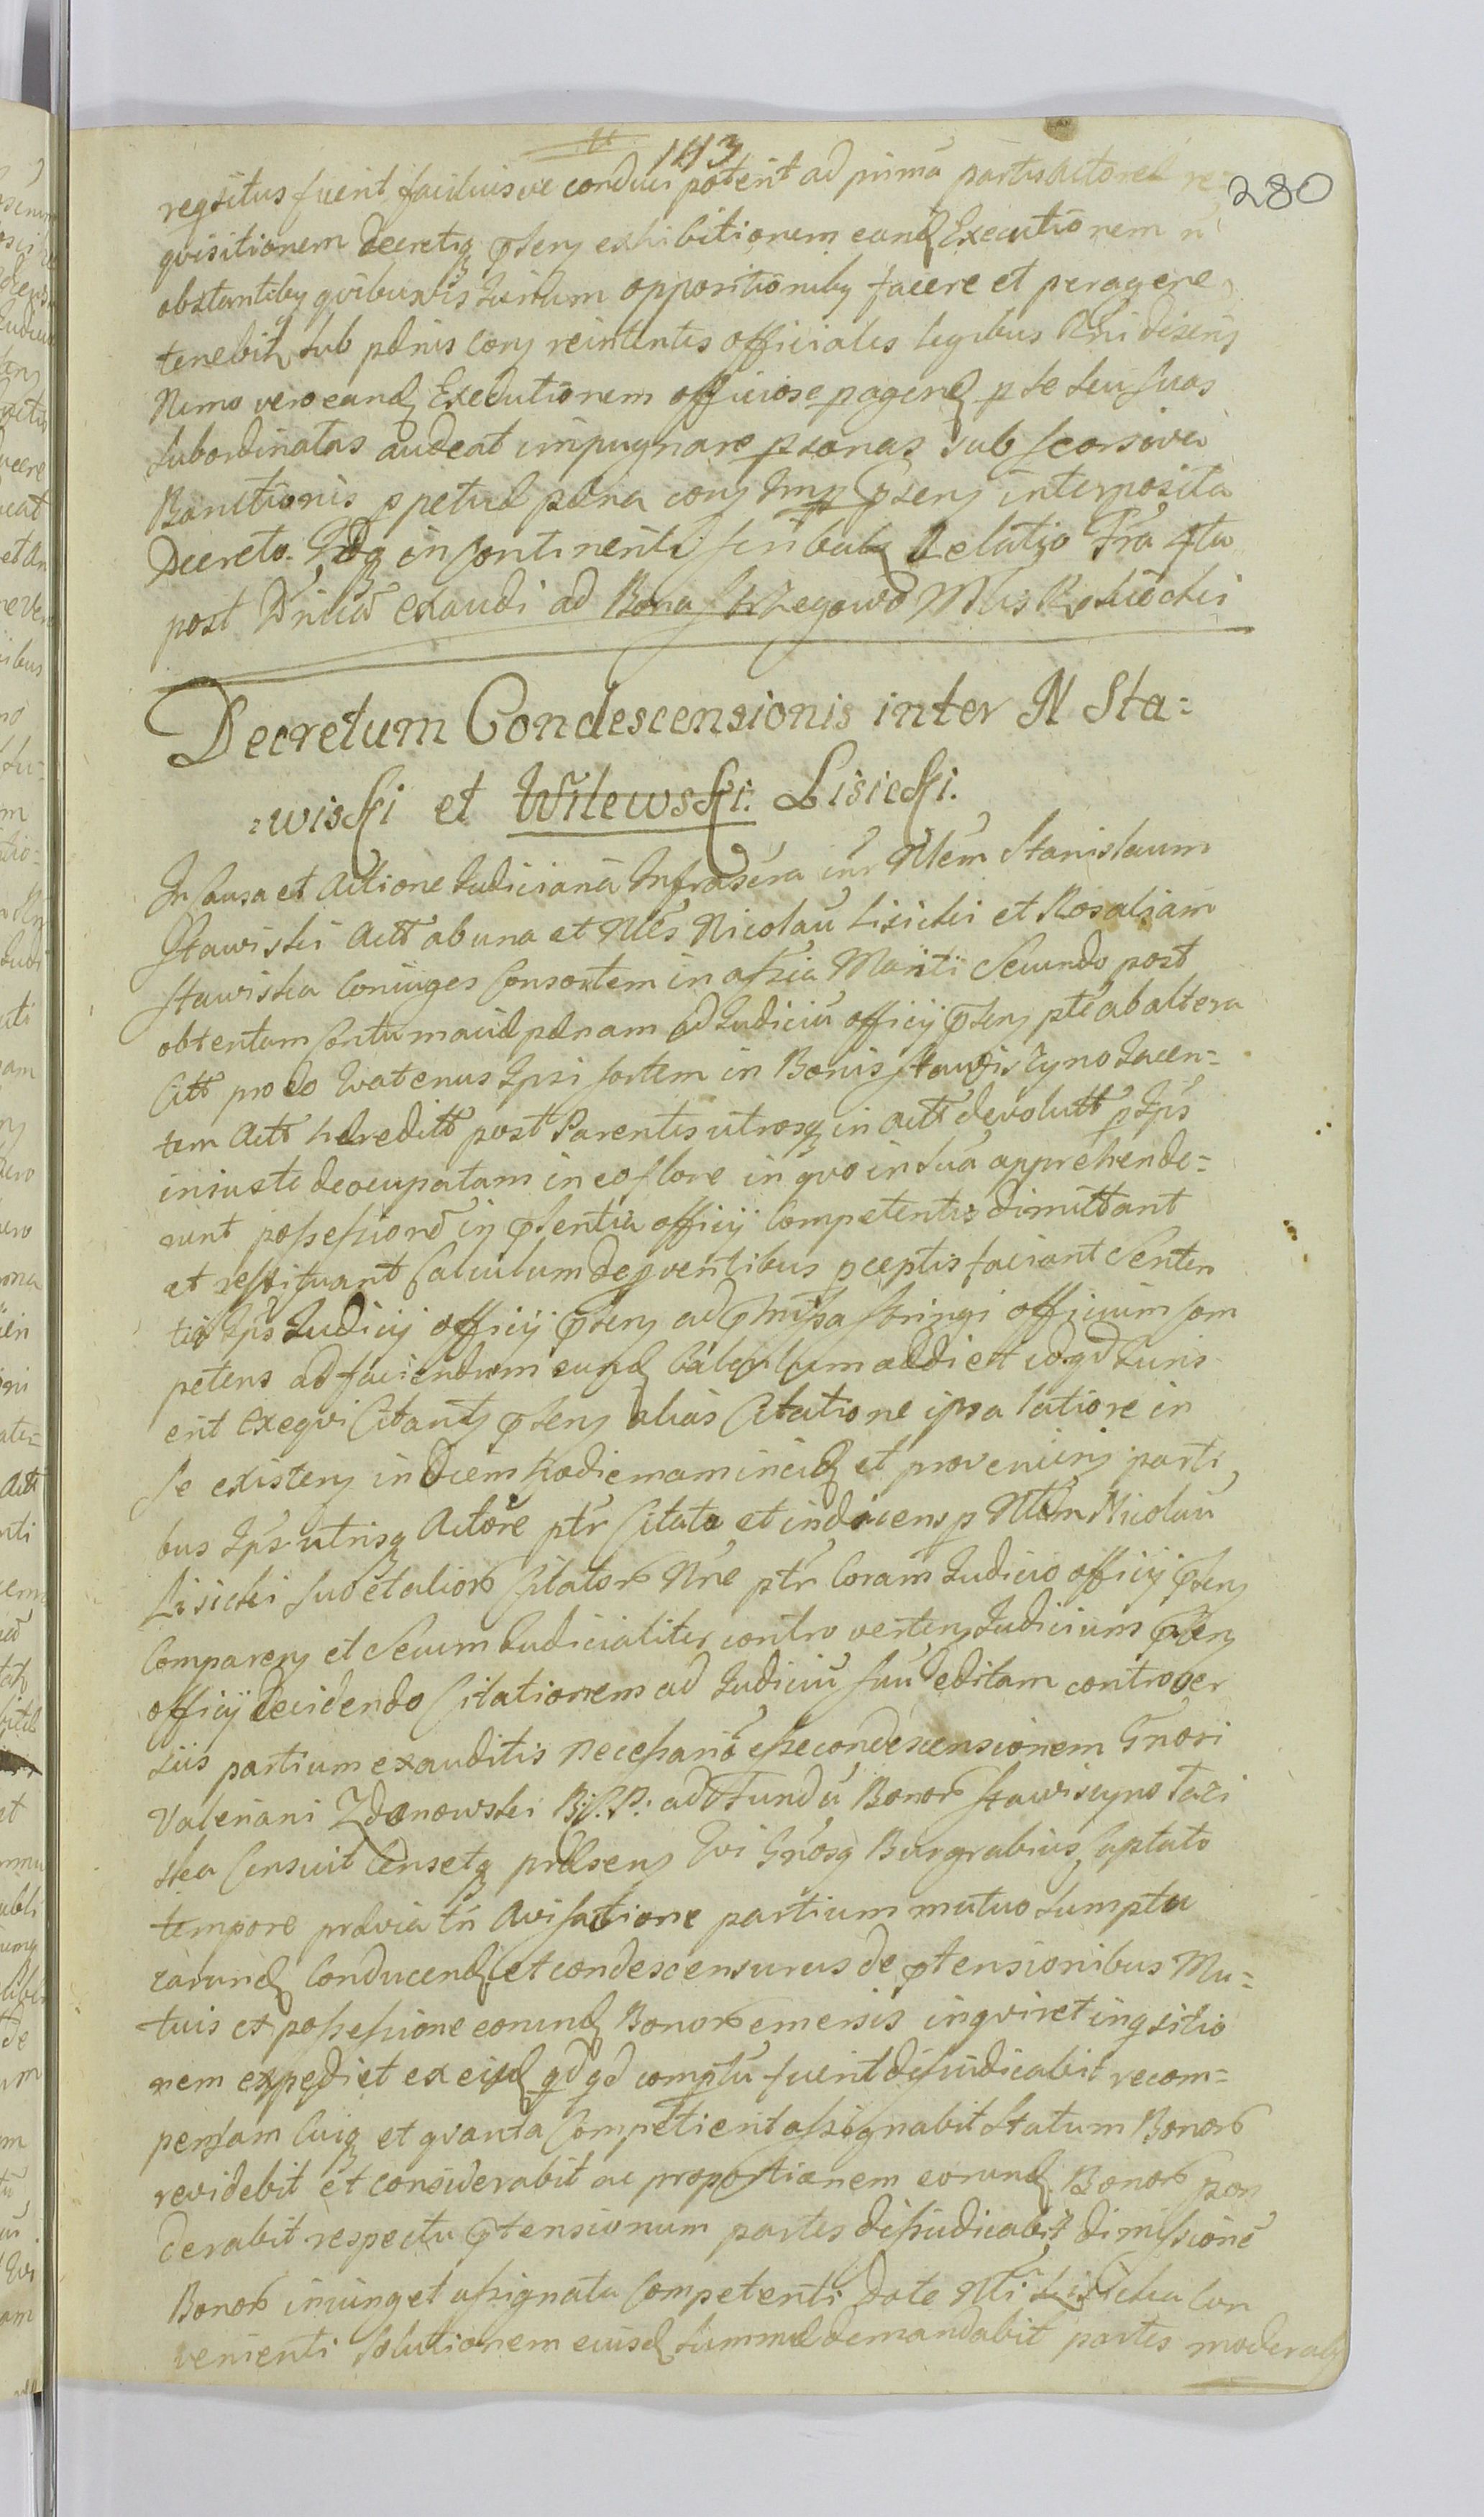 113
280
regsitus fuerit faciliusve conduci poterit ad primā partis Actoreæ re
qvisitionem decretiq pñtens exhibitionem eand Executionem n̄
obstantibus qvibusvis Iurium oppositionibus facere et peragere
tenebit sub pœnis cons reintentes officiales legibus Rni disens
Nemo vero eand Executionem officiose pagend p se seu suos
subordinatas audeat impugnare psonas sub seorsiva
Banitionis ppetuæ pœna cons Imp pñtens interposita
Decreto. in continenti scribatur Relatio Fra 4ta
post Dnicā exaudi ad Bona Strzegowo Mlis
Decretum Condescensionis inter N Sta=
=wiski et Wilewski: Lisicki.
In Causa et Actione Iudiciaria Infrascra intr Nlem Stanislaum
Stawiski Actt ab una et Nles Nicolaū Lisicki et Rosaliam
Stawiska Coniuges Consortem in assia Mariti Secundo post
obtentam Contumaciæ pœnam ad Iudiciū officij pñtens pte ab altera
Citt pro eo qvatenus Ipsi sortem in Bonis Stawiszyno Iacen=
tem Actt hæreditt post Parentes utrosq in Actt devolutt p Ips
iniuste deocupatam in eo flore in qvo in sua apprehende=
runt possessionē in pñtentia officij Competentis dimittant
et restituant Calculum de pventibus pceptis faciant Senten
tia Ips Iudicij officij pñtens ad pmissa stringi officium Com
petens ad faciendum eund Calculum addi et id qd Iuris
erit exeqvi Citants pñtens alias Citatione ipsa latiore in
se existens in diem hodiernam incid et proveniens parti
bus Ips utrisq Actore ptr Citato et inducens p Nlem Nicolaū
Lisicki suo et alior Citator Nne ptr Coram Iudicio officij pñtens
Comparens et secum Iudicialiter contro vertens Iudicium pñtens
officij decidendo Citationem ad Iudiciū suū editam controver
siis partium exauditis necessariō esse condescensionem Gnosi
Valeriani Zdonowski B: C: P: ad Fundū Bonor Stawiszyno Łazi
ska Censuit Censetq præsens Gnosq Burgrabius Captato
tempore prævia tn̄ Avisatione partium mutuo sumptu
earund Conducend et condescensurus de ptensionibus Mu=
tuis ex possessione eorund Bonor emersis inqviret inqsitio
nem expediet ex eiusd qd qd comptū fuerit disiudicabit recom=
pensam Cuiq et qvanta Competierit assignabit Statum Bonor
revidebit et considerabit ac proportionem eorund Bonor pon
derabit respectu ptensionum partes disiudicabit dimissionē
Bonor iniunget assignata Competenti Dote Nli Lisicka Con
venienti Solutionem eiusd summæ demandabit partes